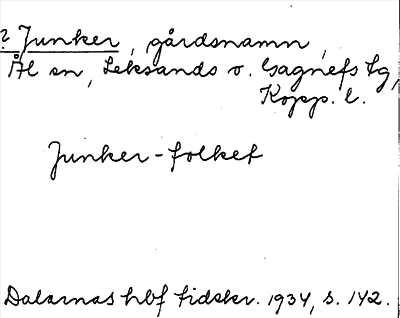 ? Junker, gårdsnamn,
Ål sn, Leksands o. Gagnefs tg,
Kopp. l.
Junker-folket
Dalarnas hbf tidskr. 1934, s. 142.